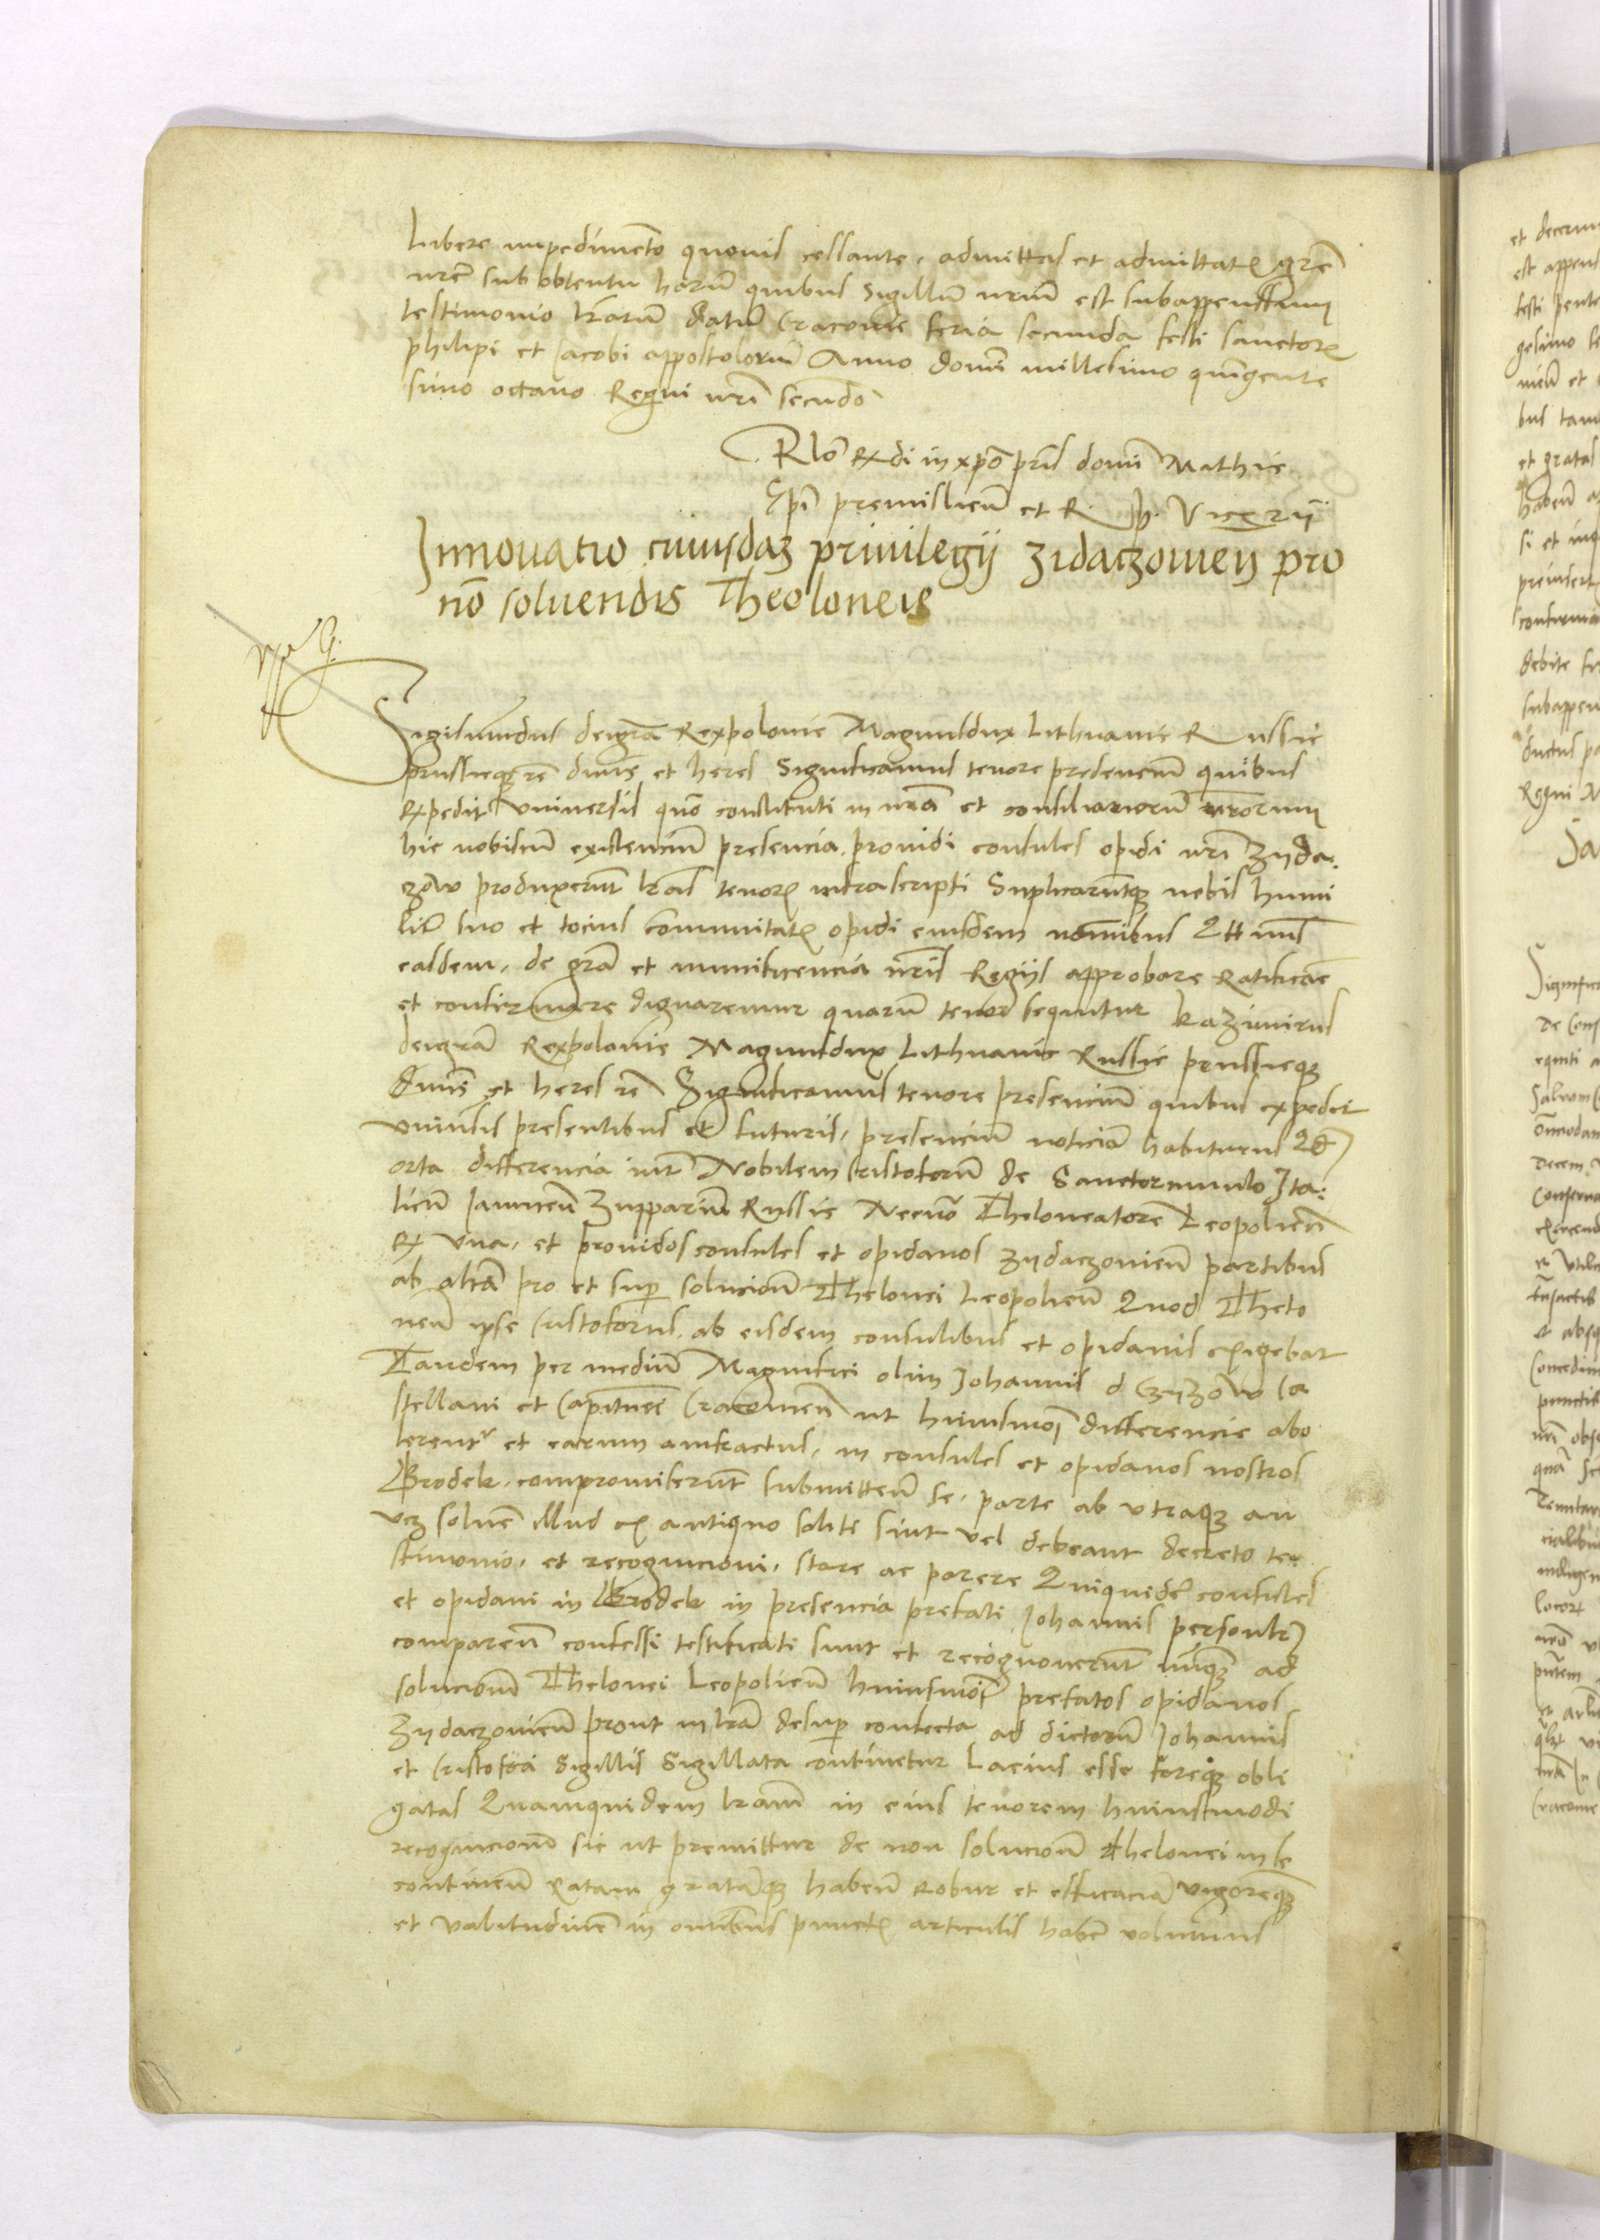 libere impedimẽto quouis cessante, admittas et admittatꝭ grẽ
nrẽ sub obtentu harũ quibus Sigillũ nrũ est subappensum
testimonio lrarũ Datũ Cracouie feria secunda festi sanctorꝭ
philipi et Jacobi appostolorũ Anno domĩ millesimo quĩgente
simo octauo Regni nrĩ secũdo
Rlõ Rdi in xpõ pris domĩ Mathie
Epĩ premislieñ et R. p. Vicecarij
Innouatio cuiusdaʒ priuilegij Zidaczowieñ pro
nõ soluendis Theoloneis
Sigismũdus dei grã Rex polonie Magnus dux Lithuanie Russie
prussieqʒ rẽ dũs et heres Significamus tenore presenciũ quibus
expedit Vniuersis quõ constituti in nrã et consiliariorũ nrõrum
hic nobiscũ existenciũ presencia, prouidi consules opidi nrĩ Zyda:
czow produxerũt lras tenorꝭ infrascripti Suplicarũtqʒ nobis humi
litr̃ suo et tocius cõmunitatꝭ opidi eiusdem nomĩbus Qtinus
easdem, de grã et munificencia nrĩs Regijs approbare Ratificare
et confirmare dignaremur quarũ tenor sequitur Kazimirus
dei grã Rex polonie Magnus dux Lithuanie Russie prussieqʒ
dũs et heres rẽ Significamus tenore presenciũ quibus expedit
vniũsis presentibus et futuris, presenciũ noticiã habituris Qõ
orta differencia intr̃ Nobilem Cristoferũ de Sanctoromulo Ita:
licũ Janueñ Zupparium Russie Necnõ Theloneatorẽ Leopolieñ
ex vna, et prouidos consules et opidanos Zydaczowieñ partibus
ab altã pro et sup solucionẽ Thelonei Leopolieñ Quod Thelo
neũ ipse Cristoforus, ab eisdem consulibus et opidanis exigebat
Tandem per mediũ Magnifici olim Johannis d Czyzow Ca
stellani et Capitanei Cracouieñ ut huiusmoĩ differencie abo
lerentr et earum anfractus, in consules et opidanos nostros
Grodek, compromiserũt submitteñ se, parte ab vtraqʒ an
vʒ soluẽ illud ex antiquo soliti sint vel debeant decreto te
stimonio, et recognicioni, stare ac parere Quiquidẽ consules
et opidani in Grodek in presencia prefati Johannis personlr̃
compareñ confessi testificati sunt et recognouerũt nũqʒ ad
solucionẽ Thelonei Leopolieñ huiusmoĩ prefatos opidanos
Zydaczowieñ prout in lrã desup confecta ad dictorũ Johannis
et Cristofori Sigillis Sigillata continetur Lacius esse foreqʒ obli
gatas Quamquidem lram in eius tenorem huiusmodi
recognicionẽ sic ut premittur de non solucionẽ Thelonei in se
contineñ Ratam gratãqʒ habeñ Robur et efficaciã vigoreqʒ
et valitudinẽ in omĩbus punctꝭ articulis habẽ volumus